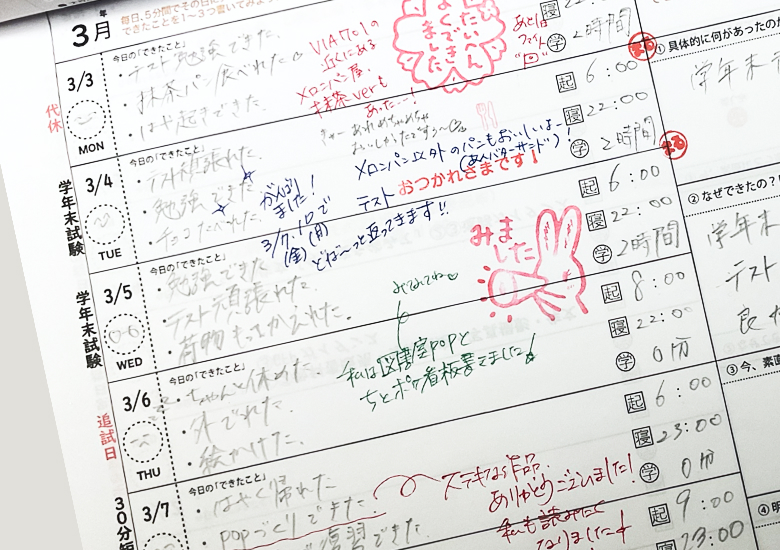 年
3月
毎日、5分間でその日の
できたことを1〜3つ書いてみよ
代休
3/3
MON
今日の「できたこと」
・テスト勉強できた
・抹茶パン食べれた
・はや起きできた
VIA701の
近くにある
メロンパン屋、
抹茶verも
あったー!
たいへん
よくでき
ました
あとは
2時間
学
起 6:00
寝 22:00
学 2時間
学年末試験
3/4
TUE
今日の「できたこと」
・テスト頑張れた
・勉強できた
・チョコたべれた
がんばり
ました!
メロンパン以外のパンもおいしいよー
(あんバターサンド)!
テスト おつかれさまです!
3/7, 10で
(金)(月)
どばーっと返ってきます!!
起 6:00
寝 22:00
学 2時間
学年末試験
3/5
WED
今日の「できたこと」
・勉強できた
・テスト頑張れた
・荷物もってかえれた
みました
みてみてね
私は図書室POPと
起 8:00
寝 22:00
学 0分
追試日
3/6
THU
今日の「できたこと」
・ちゃんと休めた
・外でれた
・絵かけた
起 6:00
寝 23:00
学 0分
30分短
3/7
今日の「できたこと」
・はやく帰れた
・POPづくりできた
復習できた
ステキな作品
ありがとうございました!
なりました
起 9:00
寝 23:00
①具体的に何があったの
学年末テ
②なぜできたの?
学年末
テスト
良
③今、素直
④明